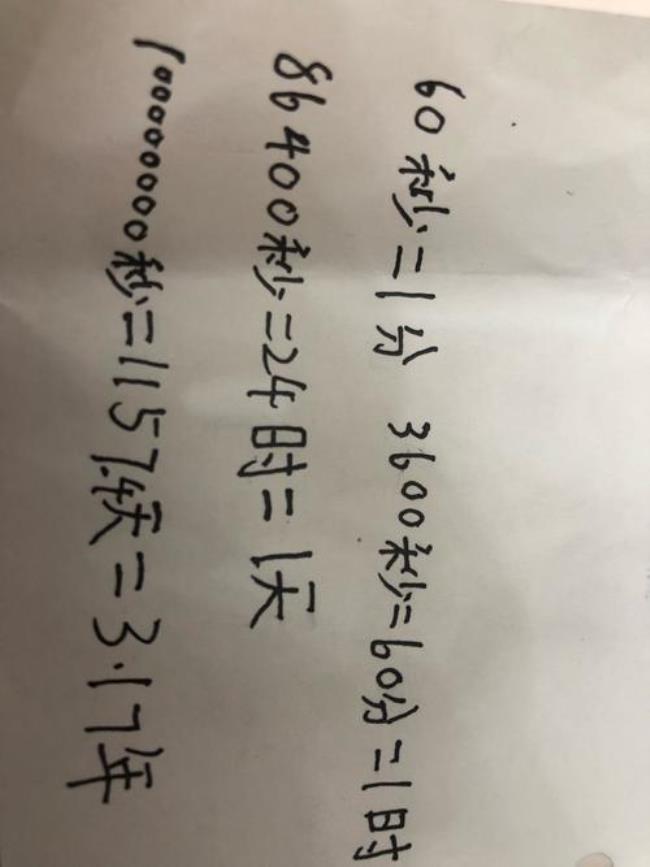 60秒=1分 3600秒=60分=1时
86400秒=24时=1天
100000000秒=1157.4天=3.17年